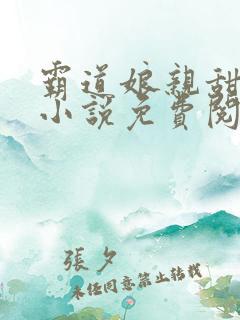 霸道娘親甜
小說免費閱
張夕
未经同意禁止转载